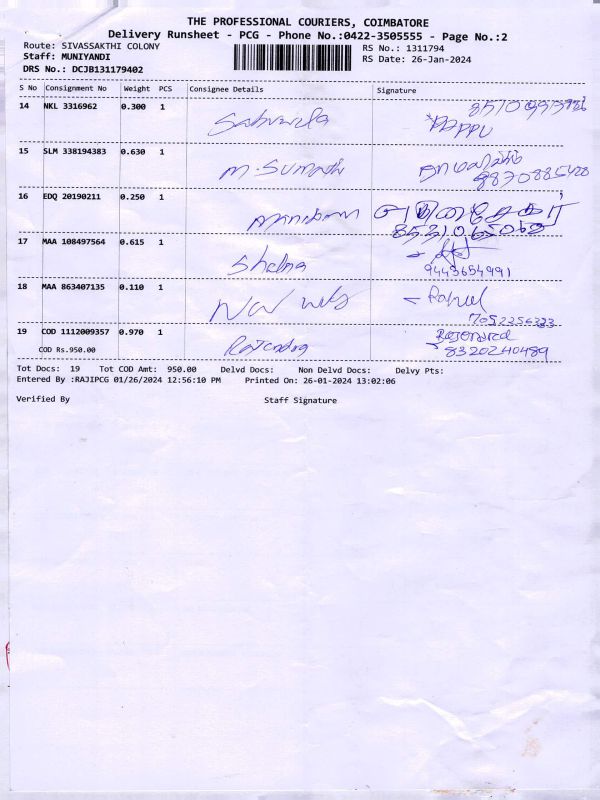 THE PROFESSIONAL COURIERS, COIMBATORE
Delivery Runsheet - PCG - Phone No.:0422-3505555 - Page No.:2
Route: SIVASSAKTHI COLONY RS No.: 1311794
Staff: MUNIYANDI RS Date: 26-Jan-2024
DRS No.: DCJB131179402
S No Consignment No Weight PCS Consignee Details Signature
14 NKL 3316962 0.300 1
PAPPU
15 SLM 338194383 0.630 1 M. Sumathi
9870885420
16 EDQ 20190211 0.250 1
17 MAA 108497564 0.615 1
9443654991
18 MAA 863407135 0.110 1 Rahul
7052256333
19 COD 1112009357 0.970 1
COD Rs.950.00 8320240489
Tot Docs: 19 Tot COD Amt: 950.00 Delvd Docs: Non Delvd Docs: Delvy Pts:
Entered By :RAJIPCG 01/26/2024 12:56:10 PM Printed On: 26-01-2024 13:02:06
Verified By Staff Signature